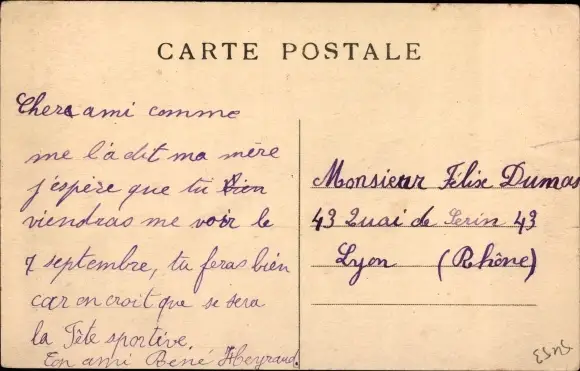 CARTE POSTALE
Cher ami comme
me l'a dit ma mère
j'espère que tu bien
viendras me voir le
7 septembre, tu feras bien
car on croit que se sera
la Fête sportive.
Ton ami René Heyraud
Monsieur Félix Dumas
43 Quai de Serin 43
Lyon (Rhône)